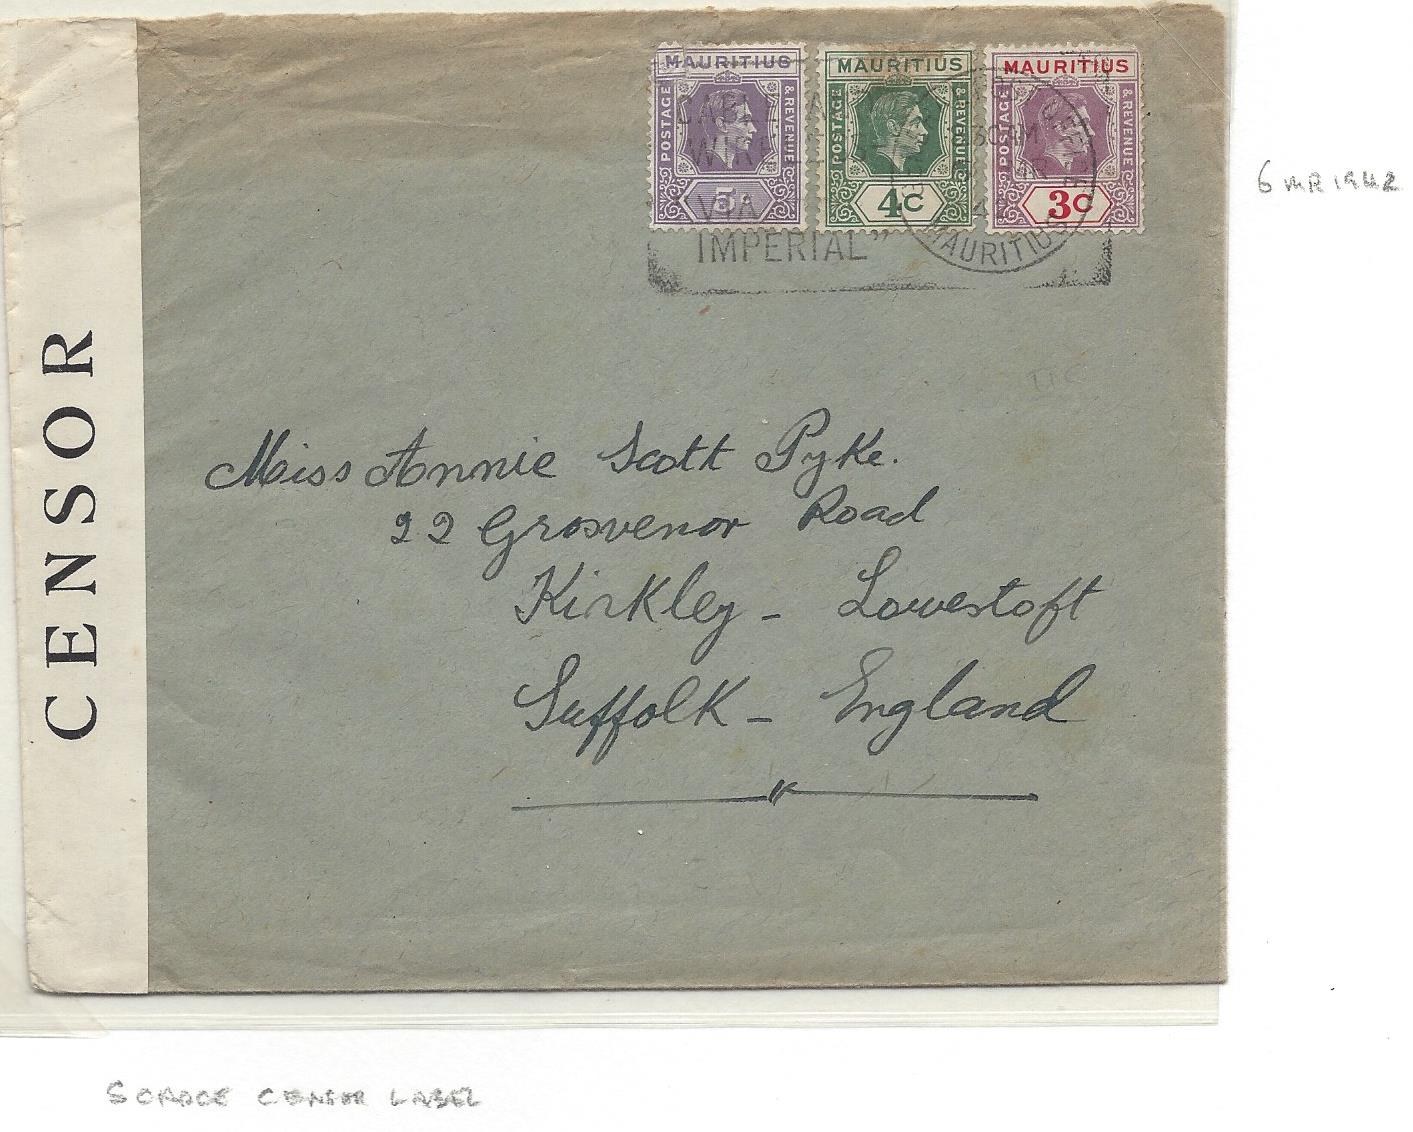 MAURITIUS MAURITIUS MAURITIUS
POSTAGE & REVENUE POSTAGE & REVENUE POSTAGE & REVENUE
5 4C 3C
CABLE
VIA
IMPERIAL"
30AM
MR
42
MAURITIUS
6 MR 1942
CENSOR
Miss Annie Scott Pyke.
22 Grosvenor Road
Kirkley - Lowestoft
Suffolk - England
SCARCE CENSOR LABEL